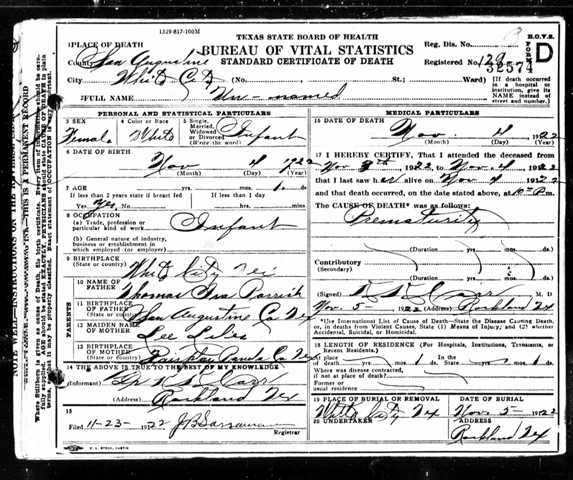 1329-817-100M
TEXAS STATE BOARD OF HEALTH
BUREAU OF VITAL STATISTICS
STANDARD CERTIFICATE OF DEATH
B.O.V.S.
FORM D
Reg. Dis. No.
Registered No.
32574
1 PLACE OF DEATH
County San Augustine
City White City (No. St.; Ward)
[If death occurred in a hospital or institution, give its NAME instead of street and number.]
2 FULL NAME Un-named
PERSONAL AND STATISTICAL PARTICULARS
3 SEX Female
4 Color or Race White
5 Single, Married, Widowed or Divorced (Write the word) Infant
6 DATE OF BIRTH
Nov 4 1922
(Month) (Day) (Year)
7 AGE
If less than 2 years state if breast fed Yes yes.
If less than 1 day hrs. mins
yrs. mos. 1 ds.
8 OCCUPATION
(a) Trade, profession or particular kind of work Infant
(b) General nature of industry, business or establishment in which employed (or employer)
9 BIRTHPLACE
(State or country) White City Tex
PARENTS
10 NAME OF FATHER Thomas Ira Parrish
11 BIRTHPLACE OF FATHER
(State or country) San Augustine Co. Tex
12 MAIDEN NAME OF MOTHER Lee Liles
13 BIRTHPLACE OF MOTHER
(State or country) Co. Tex
14 THE ABOVE IS TRUE TO THE BEST OF MY KNOWLEDGE
(Informant) Carr
(Address) Rockland Tex
15
Filed 11-23- 1922
Registrar
MEDICAL PARTICULARS
16 DATE OF DEATH
Nov. 4 1922
(Month) (Day) (Year)
17 I HEREBY CERTIFY, That I attended the deceased from
Nov 3rd 1922 to Nov 4 1922
that I last saw her alive on Nov 4 1922
and that death occurred, on the date stated above, at 10 P.m.
The CAUSE OF DEATH* was as follows:
Prematurity
(Duration yrs. mos. ds.
Contributory
(Secondary)
(Duration yrs. mos. ds.
(Signed) Carr M. D.
Nov. 5- 1922 (Address) Rockland Tex
*Use International List of Cause of Death—State the Disease Causing Death, or, in deaths from Violent Causes, State (1) Means of Injury; and (2) whether Accidental, Suicidal, or Homicidal.
18 LENGTH OF RESIDENCE (For Hospitals, Institutions, Transients, or Recent Residents.)
At place of death yrs. mos. 1 ds. In the State yrs. mos. 1 ds.
Where was disease contracted, if not at place of death?
Former or usual residence
19 PLACE OF BURIAL OR REMOVAL
White City Tex
DATE OF BURIAL
Nov. 5- 1922
20 UNDERTAKER
ADDRESS
Rockland Tex